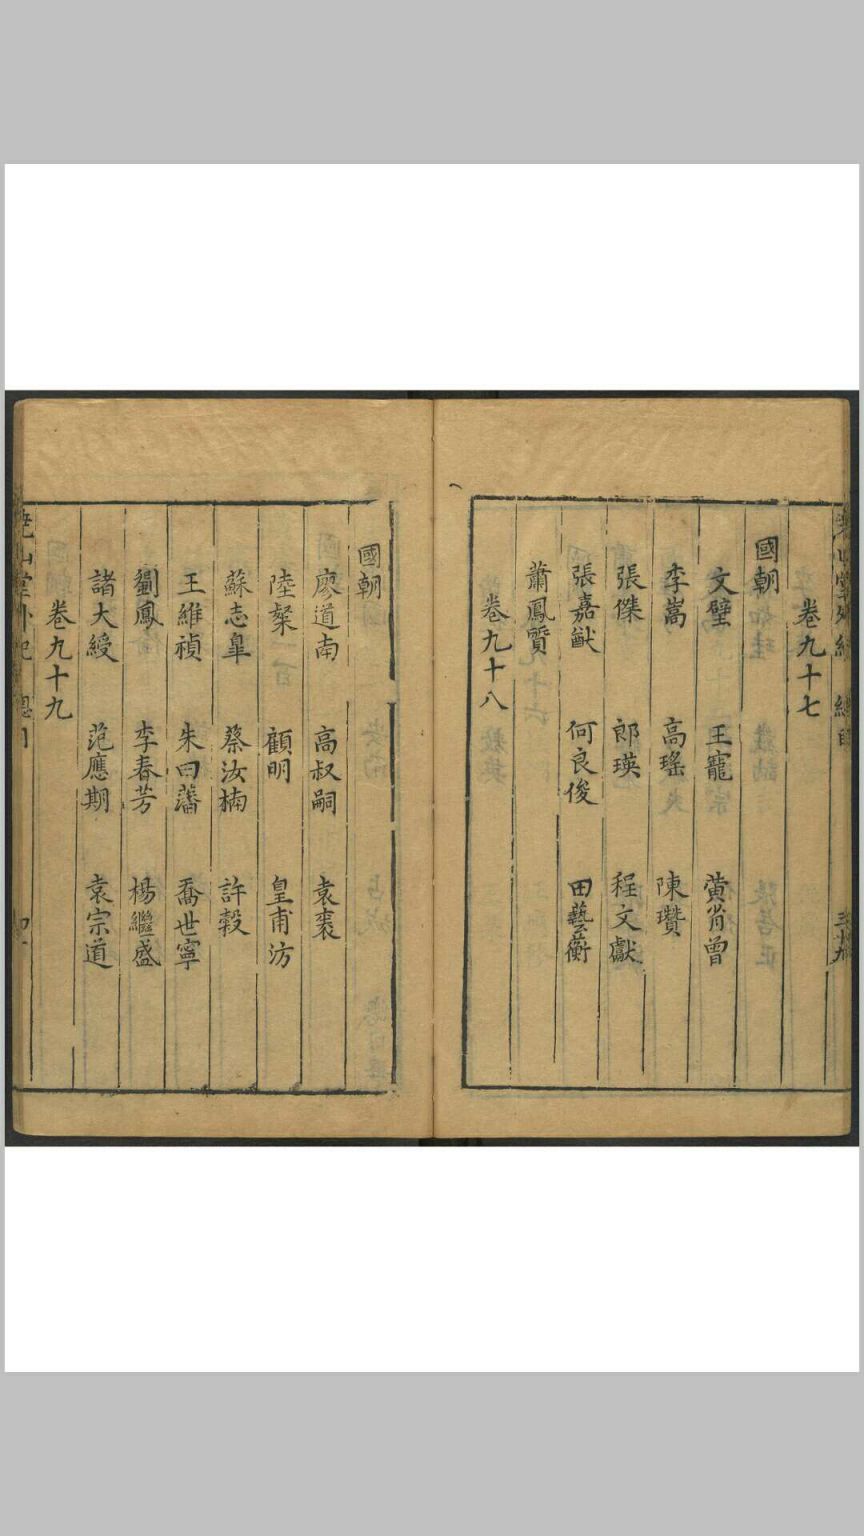 卷九十七
國朝
文璧 王寵 黃省曾
李嵩 高瑤 陳瓚
張傑 郎瑛 程文獻
張嘉猷 何良俊 田藝蘅
蕭鳳質
卷九十八
國朝
廖道南 高叔嗣 袁袠
陸粲 顧明 皇甫汸
蘇志皐 蔡汝楠 許穀
王維禎 朱曰藩 喬世寧
劉鳳 李春芳 楊繼盛
諸大綬 范應期 袁宗道
卷九十九